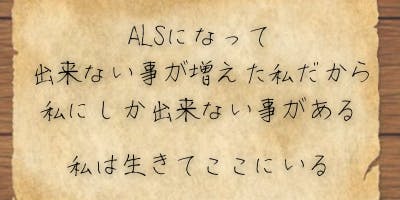 ALSになって
出来ない事が増えた私だから
私にしか出来ない事がある
私は生きてここにいる